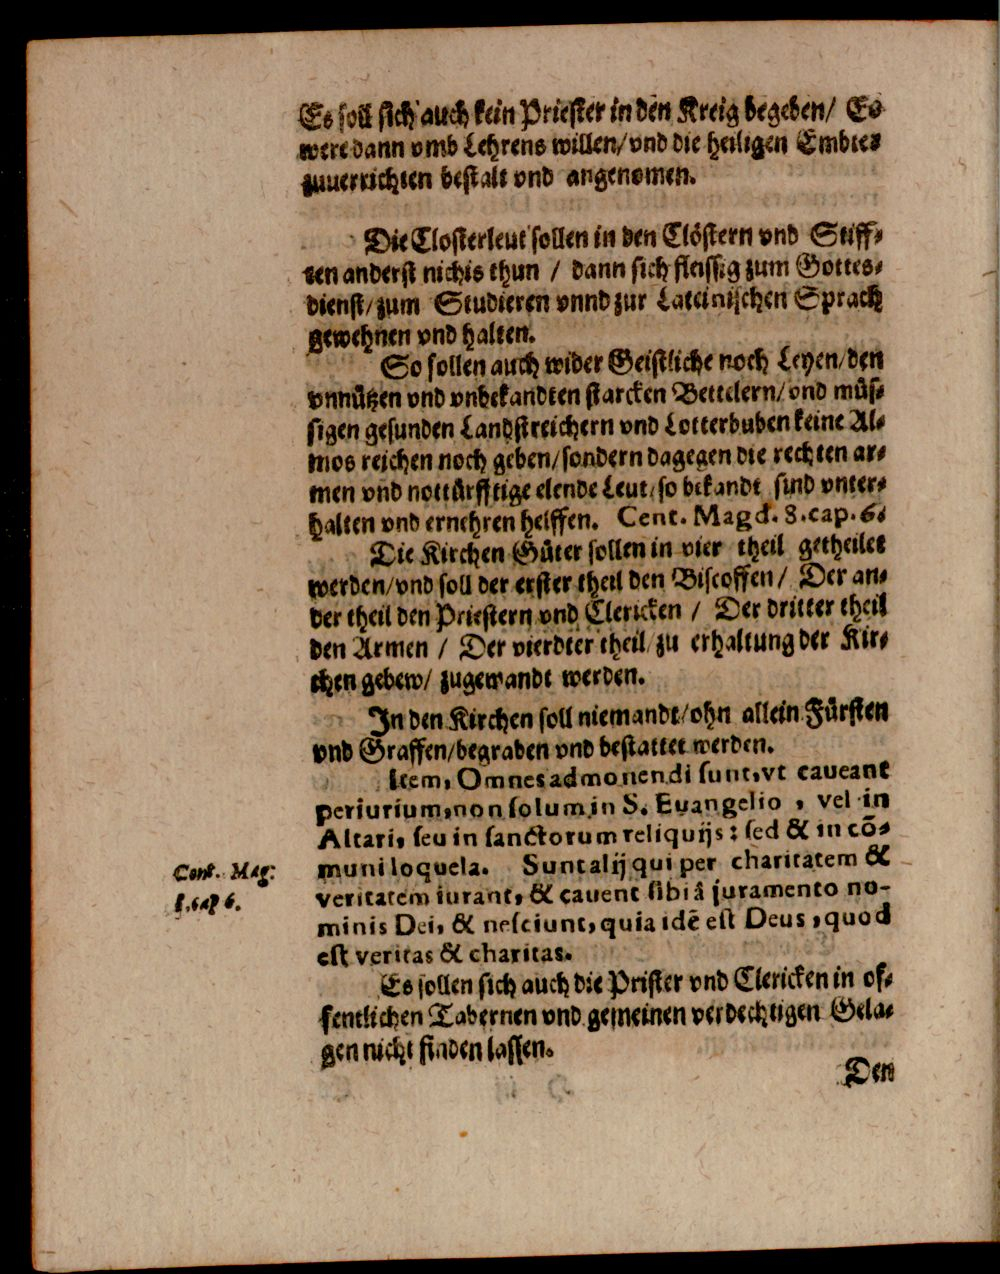 Es soll sich auch kein Priester in den Kreig begeben/ Es
were dann vmb Lehrens willen/ vnd die heiligen Embter
zuuerrichten bestalt vnd angenomen.
Die Closterleut sollen in den Clöstern vnd Stiff-
ten anderst nichts thun / dann sich fleissig zum Gottes-
dienst/ zum Studieren vnnd zur Lateinischen Sprach
gewehnen vnd halten.
So sollen auch wider Geistliche noch Leyen/ den
vnnützen vnd vnbekandten starcken Bettelern/ vnd müs-
sigen gesunden Landstreichern vnd Lotterbuben keine Al-
mos reichen noch geben/ sondern dagegen die rechten ar-
men vnd nottürfftige elende Leut/ so bekandt sind vnter-
halten vnd ernehren helffen. Cent. Magd. 8. cap. 6.
Die Kirchen Güter sollen in vier theil getheilet
werden/ vnd soll der erster theil den Biscoffen / Der an-
der theil den Priestern vnd Clericken / Der dritter theil
den Armen / Der vierdter theil/ zu erhaltung der Kir-
chen gebew/ zugewandt werden.
In den Kirchen soll niemandt/ ohn allein Fürsten
vnd Graffen/ begraben vnd bestattet werden.
Item, Omnes admonendi sunt, vt caueant
periurium, non solum in S. Euangelio, vel in
Altari, seu in sanctorum reliquijs: sed & in cō-
muni loquela. Sunt alij qui per charitatem &
veritatem iurant, & cauent sibi â juramento no-
minis Dei, & nesciunt, quia idē est Deus, quod
est veritas & charitas.
Cent. Mag:
8. cap 6.
Es sollen sich auch die Prister vnd Clericken in of-
fentlichen Tabernen vnd gemeinen verdechtigen Gela-
gen nicht finden lassen.
Den